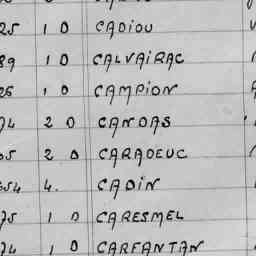 25 1 0 CADIOU
89 1 0 CALVAIRAC
26 1 0 CAMPION
74 2 0 CANDAS
05 2 0 CARADEUC
654 4. CADIN
75 1 0 CARESMEL
74 1 0 CARFANTAN